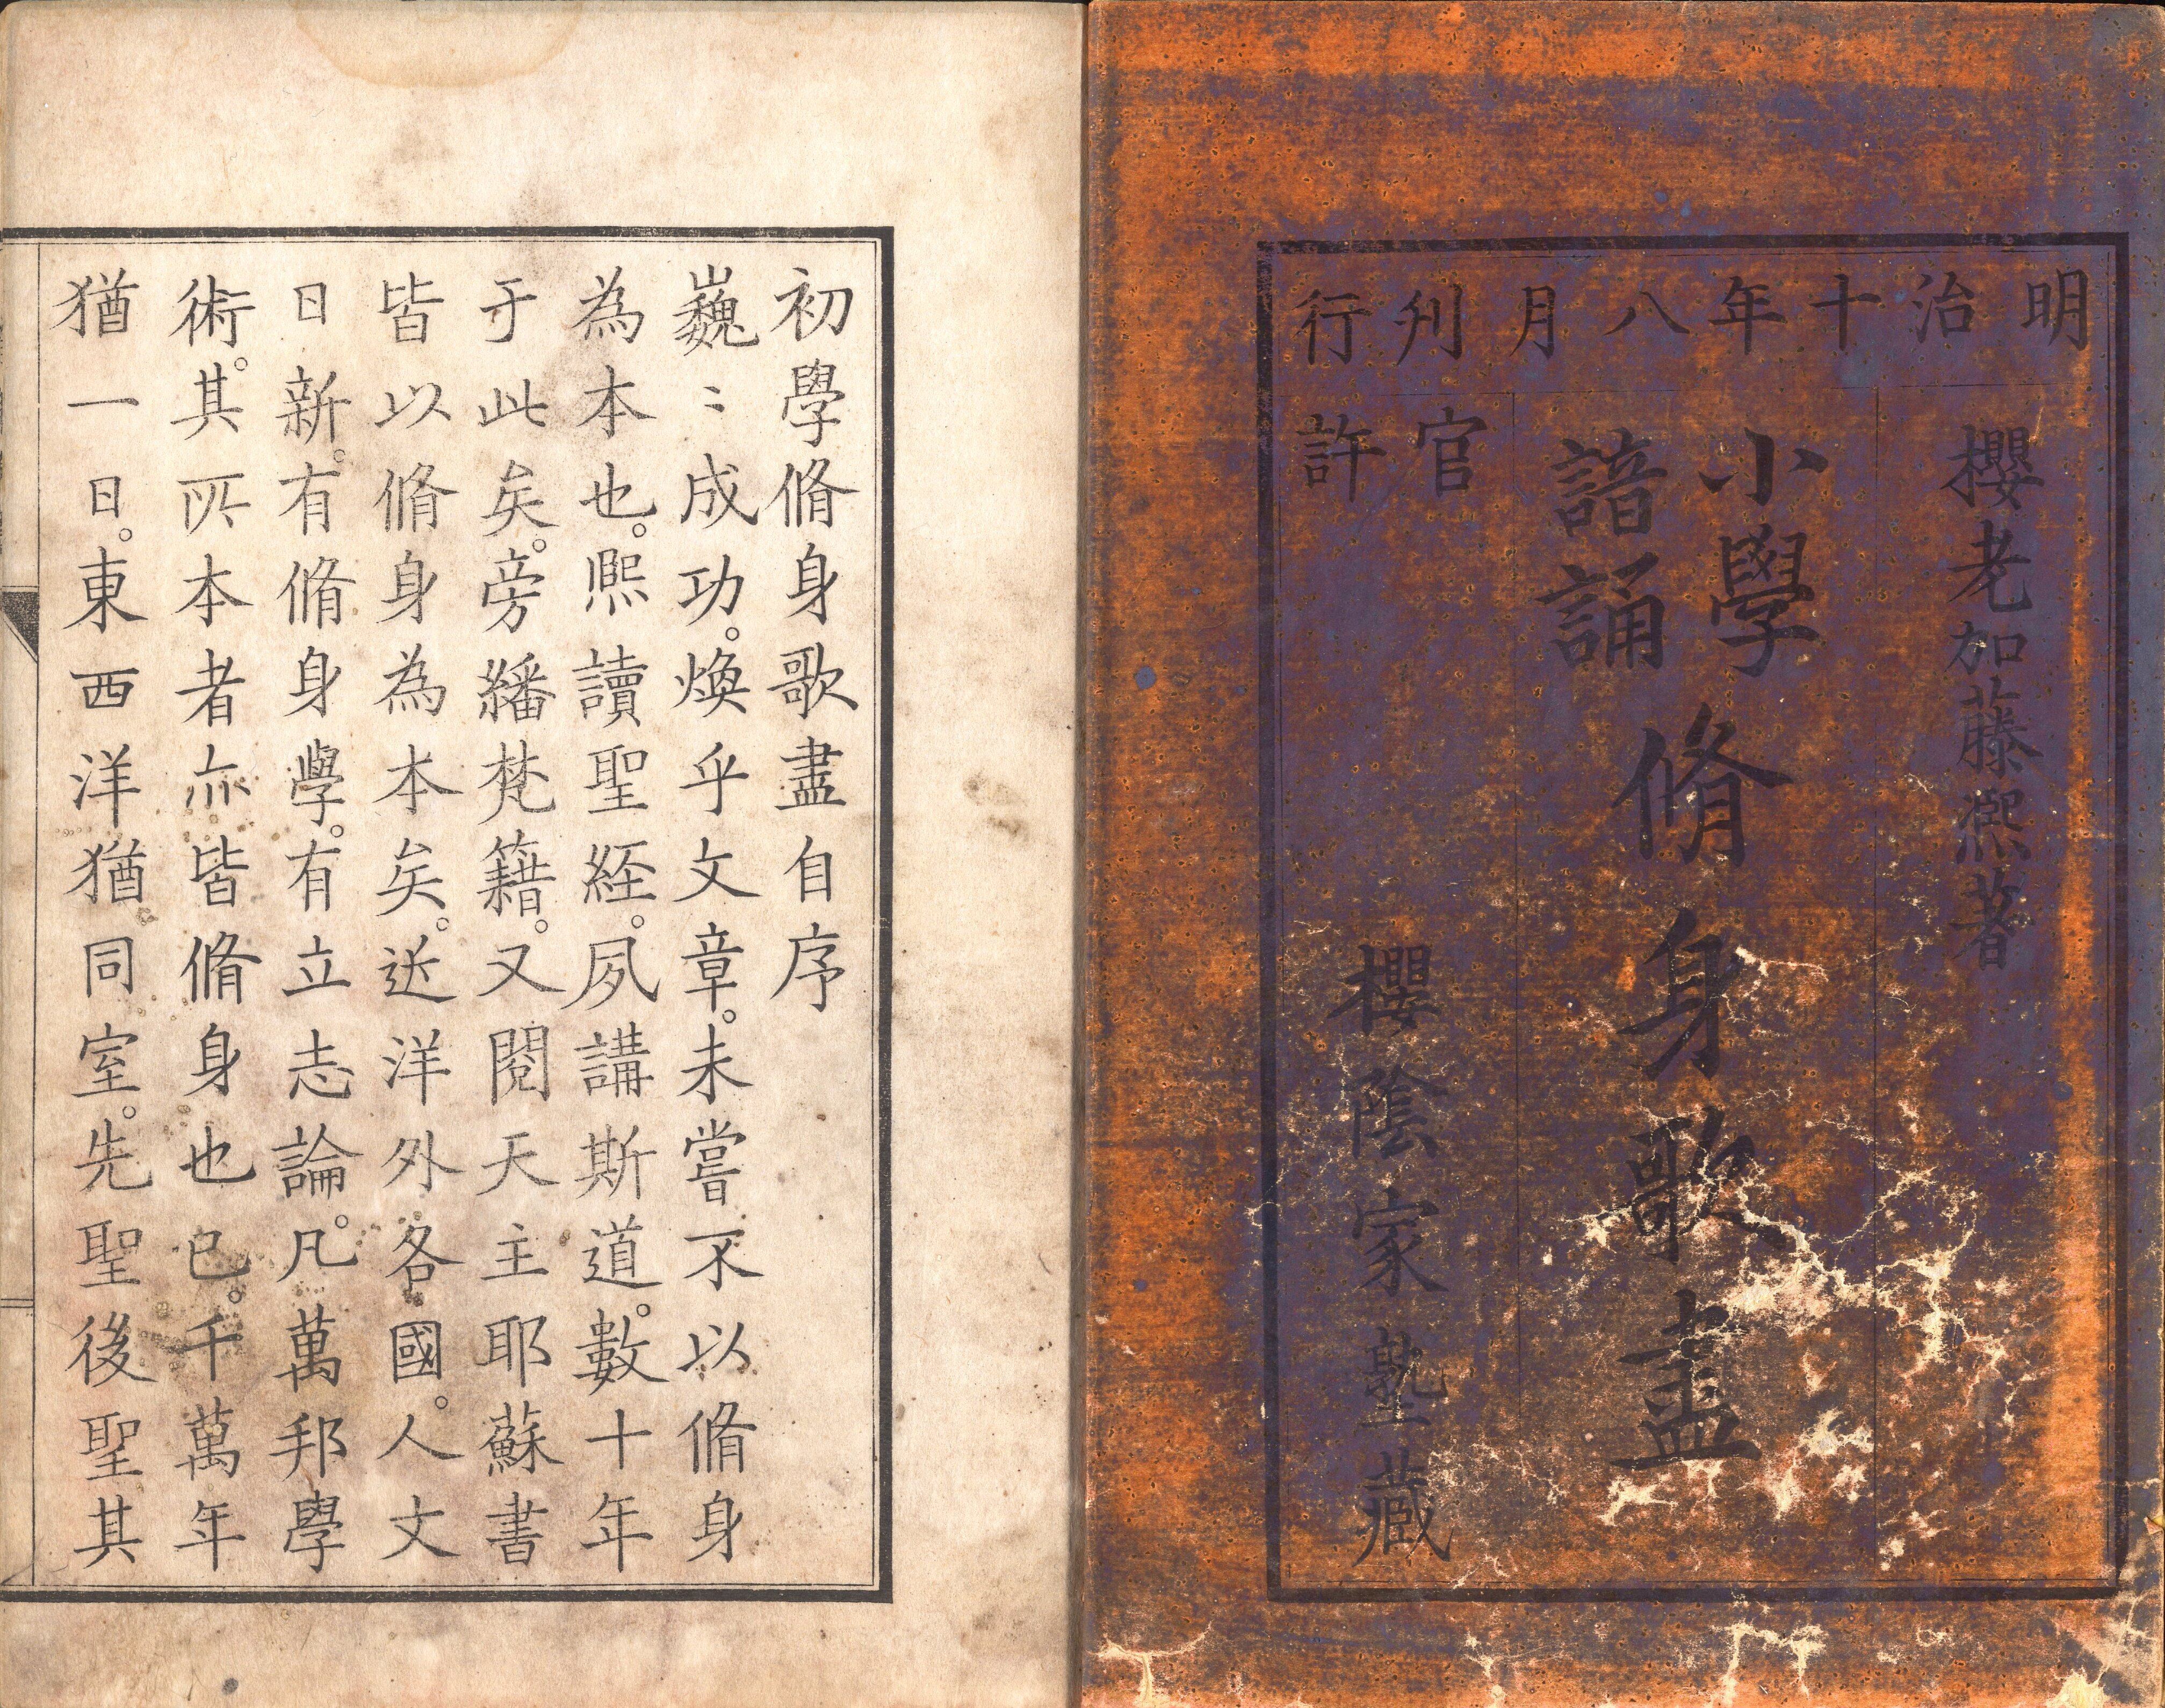 明治十年八月刋行
櫻老加藤凞著
小學
諳誦
脩身歌盡
官
許
櫻陰家塾藏
初學脩身歌盡自序
巍〻成功。煥乎文章。未嘗不以脩身
為本也。熈讀聖經。夙講斯道。數十年
于此矣。旁繙梵籍。又閱天主耶蘇書
皆以脩身為本矣。近洋外各國。人文
日新。有脩身學。有立志論。凡萬邦學
術。其所本者亦皆脩身也已。千萬年
猶一日。東西洋猶同室。先聖後聖其